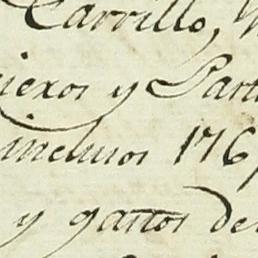 Carrillo,
y Part
inclusos 176
y gastos de